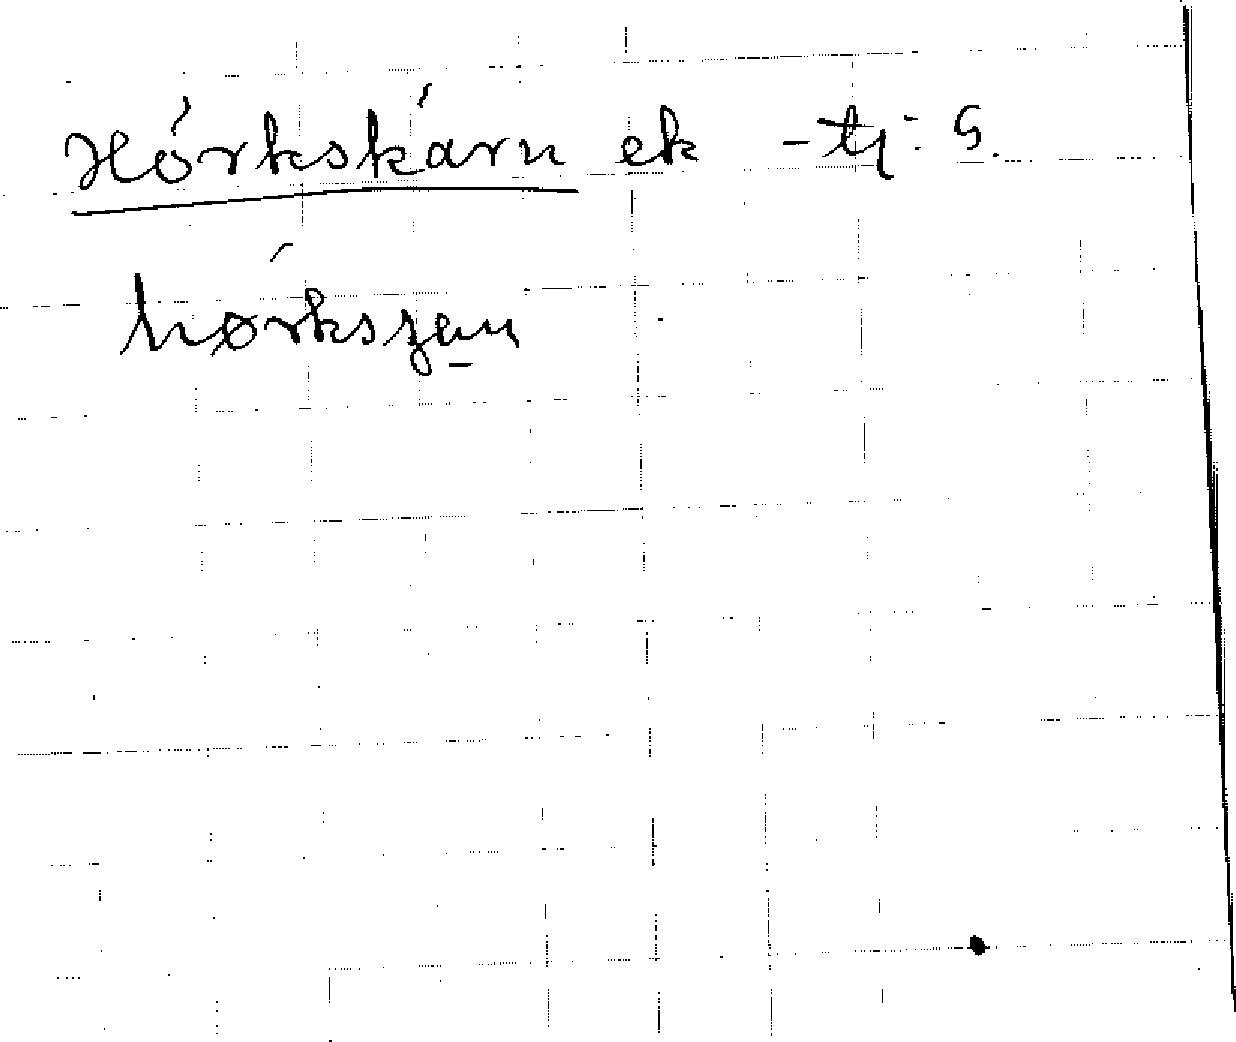 Hórkskárn ek - tj: S.
hørkszan